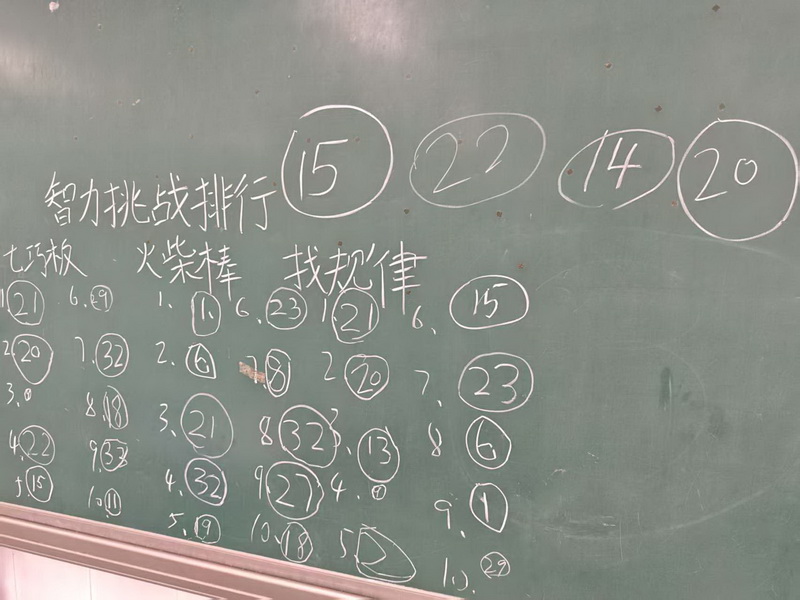 智力挑战排行 15 22 14 20
七巧板 火柴棒 找规律
1. 21 6. 29 1. 1. 6. 23 1. 21 6. 15
2. 20 7. 32 2. 6 7. 8 2. 20 7. 23
3. 8. 18 3. 21 8 32 3. 13 8 6
4. 22 9. 4. 32 9. 27 4. 9. 1
5. 15 10. 11 5. 19 10. 18 5. 2 10. 29